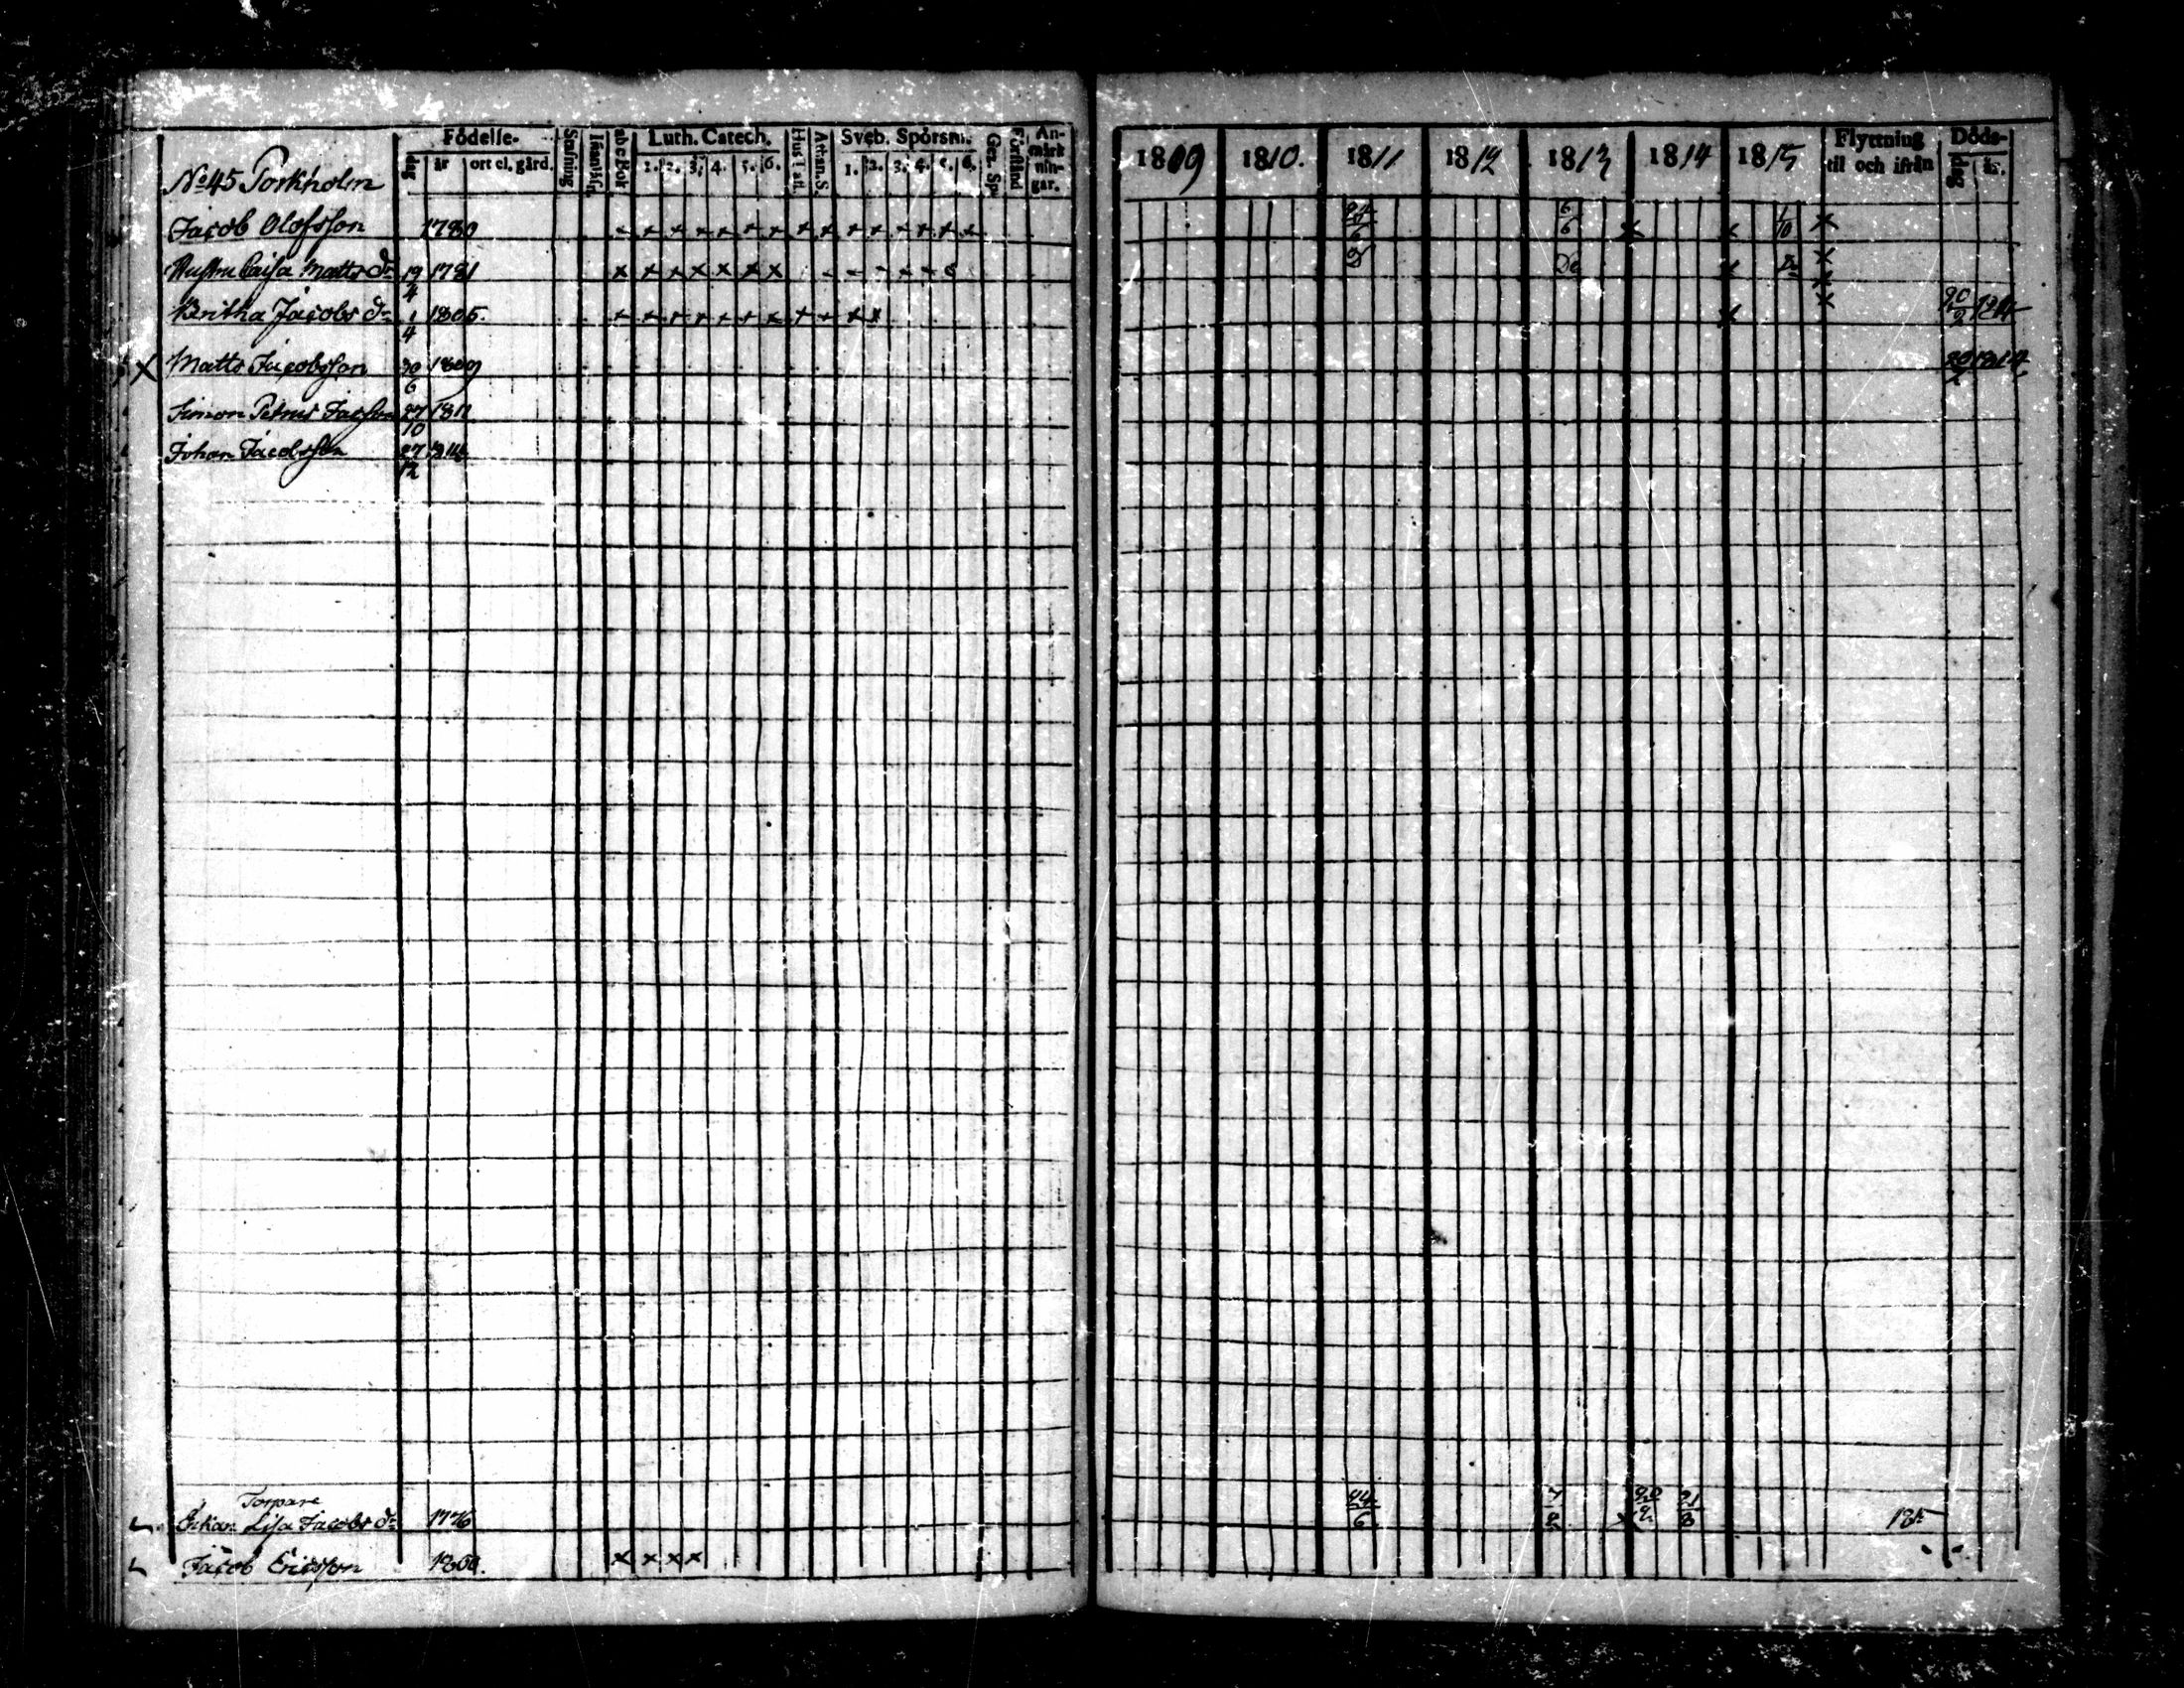 Födelse-
Luth. Catech.
Sveb. Spörsm.
An-
märk
nin-
gar.
dag år ort el. gård.
abc Bok
1. 2. 3. 4. 5. 6.
1. 2. 3. 4. 5. 6.
Gen. Sp.
Förstånd
1809 1810. 1811 1812 1813 1814 1815
Flyttning
til och ifrån
Döds-
dag år.
No 45 Porkholm
Jacob Olofsson 1780 x x x x x x x x x x x x x x x 24/6 6/6 x x 1/10 x
Hustru Caisa Matts dr 19/4 1781 x x x x x x x D Do x
Britha Jacobs dr 1/4 1805. x x x x x x x x x x x x 20/2 1814
X Matts Jacobsson 30/6 1809 1814
Simon Petrus 27/10 1811
Johan Jacobsson 27/12 1814
Torpare
Enkan Lisa Jacobs dr 1776 24/6 7/8 x 21/8 181
Jacob Ericsson 1800. x x x x